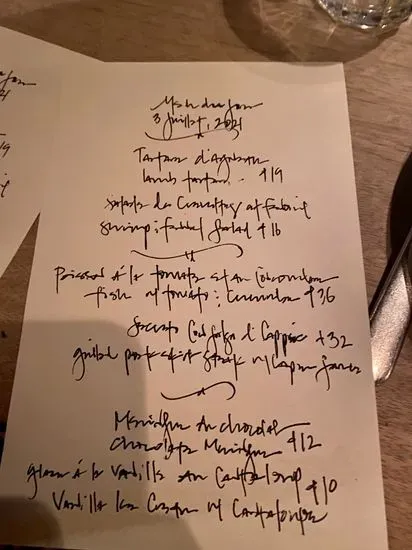 Menu du jour
3 juillet, 2021
Tartare d'agneau
lamb tartare - $19
salade de crevettes et fenouil
shrimp; fennel salad $16
Poisson à la tomate et au concombre
fish w/ tomato; cucumber $36
$32
grilled pork steak w/ caper
Meringue au chocolat
chocolate Meringue $12
glace à la vanille au cantaloup $10
Vanilla Ice Cream w/ Cantaloupe